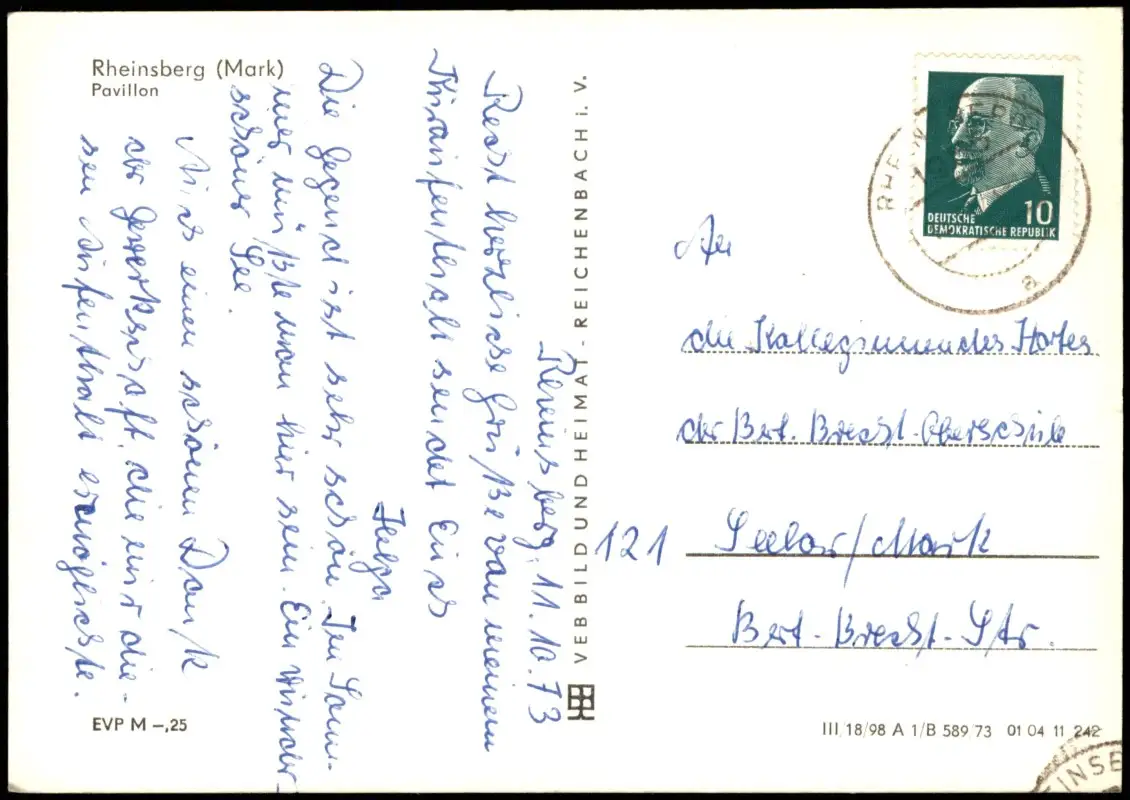 Rheinsberg (Mark)
Pavillon
Rheinsberg, 11.10.73
Recht herzliche Grüße von meinem
Kuraufenthalt sendet Euch
Helga
Die Gegend ist sehr schön. Im Som-
mer müßte man hier sein. Ein wunder-
schöner See.
Auch einen schönen Dank
der Gewerkschaft, die mir die-
sen Aufenthalt ermöglichte.
EVP M –,25
VEB BILD UND HEIMAT - REICHENBACH i. V.
DEUTSCHE
DEMOKRATISCHE REPUBLIK
10
a
An
die Kolleginnen des Hortes
der Bert. Brecht-Oberschule
121 Seelow/Mark
Bert-Brecht-Str.
III/18/98 A 1/B 589/73 01 04 11 242